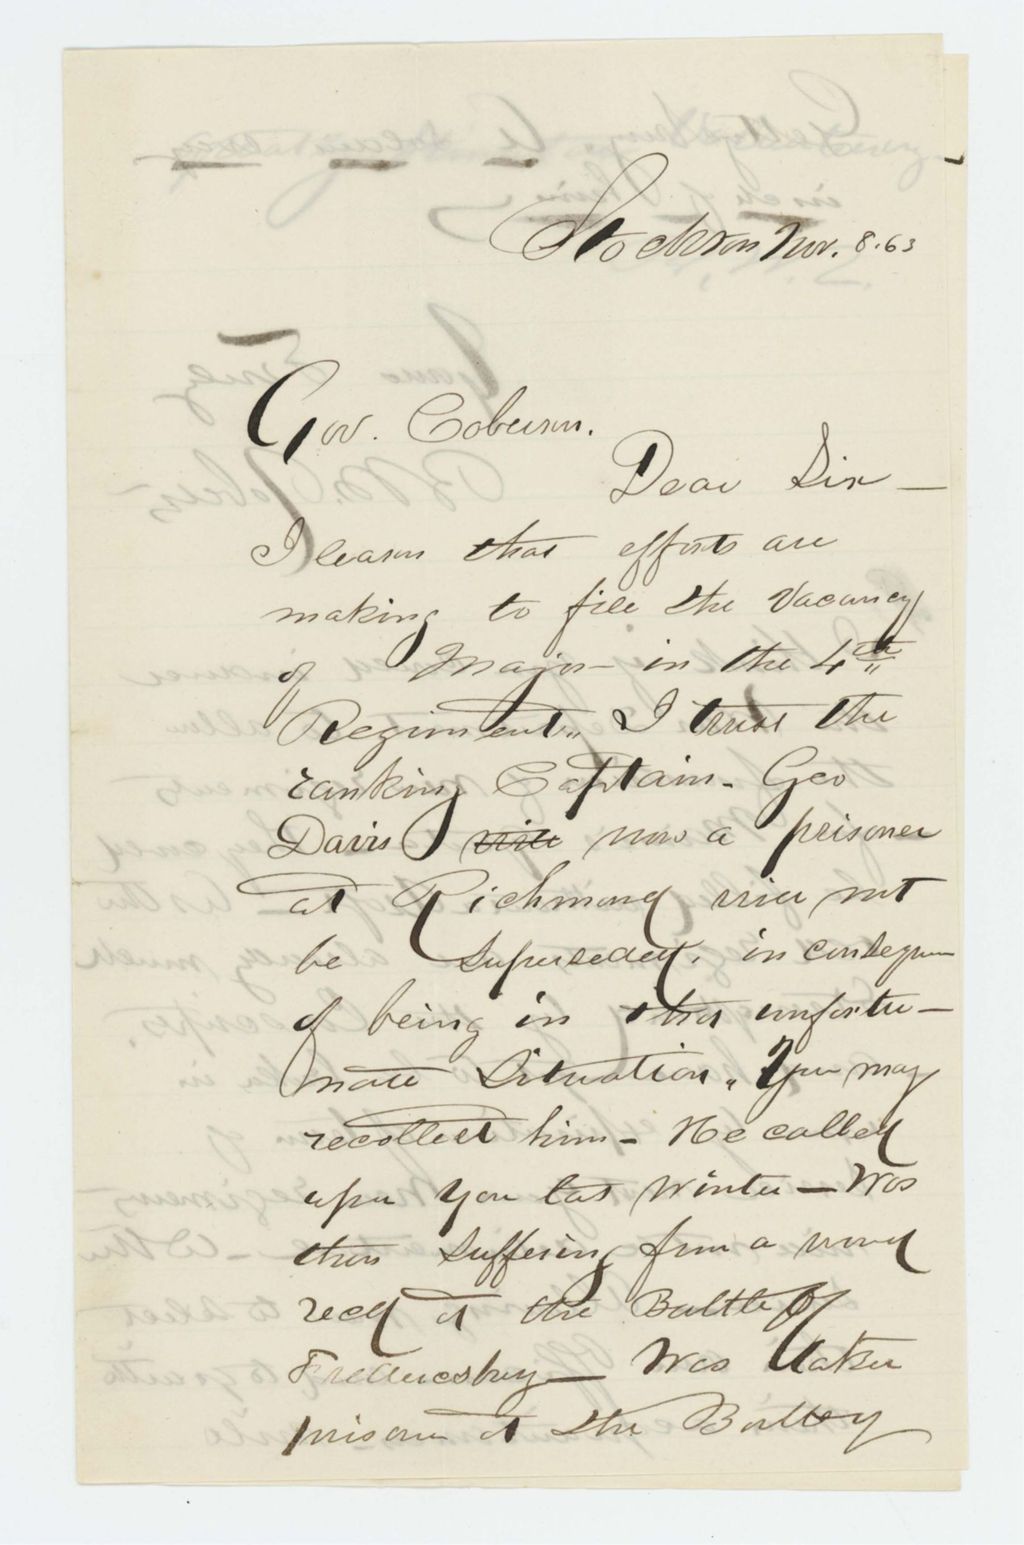 Stockton Nov. 8. 63
Gov. Coburn.
Dear Sir —
I learn that efforts are
making to fill the Vacancy
of Major — in the 4th
Regiment. I trust the
ranking Captain - Geo
Davis will now a prisoner
at Richmond will not
be superseded, in consequen
of being in that unfortu-
nate situation. You may
recollect him - He called
upon you last winter — Was
then suffering from a wound
recd at the Battle of
Fredericsburg — Was taken
prisoner at the Battle of